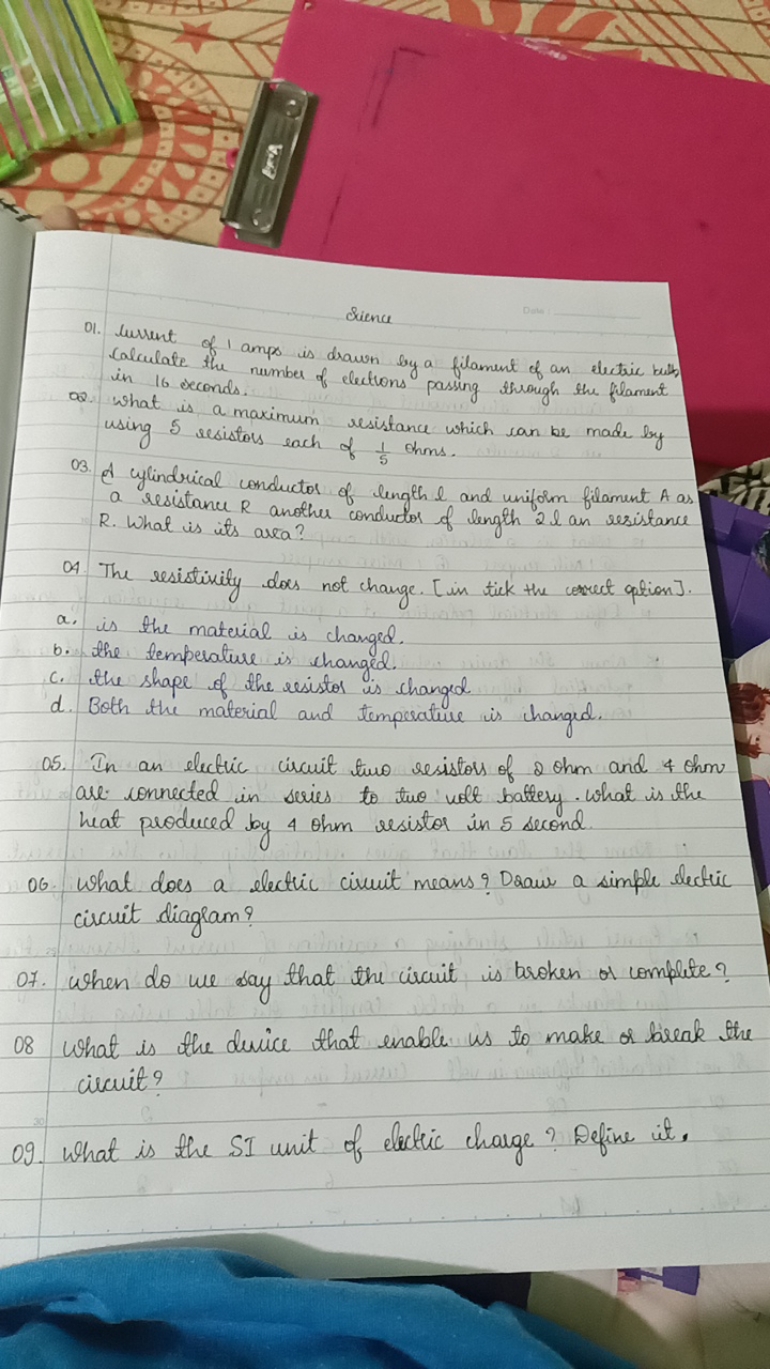 Science
Date :
01. Current of 1 amps is drawn by a filament of an electric bulb
Calculate the number of elections passing through the filament
in 16 seconds.
02. What is a maximum resistance which can be made by
using 5 resistors each of 1/5 ohms.
03. A cylindrical conductor of length l and uniform filament A as
a resistance R another conductor of length 2l an resistance
R. What is its area?
04. The resistivity does not change. [in tick the correct option].
a. is the material is changed.
b. the temperature is changed.
c. the shape of the resistor is changed
d. Both the material and temperature is changed.
05. In an electric circuit two resistors of 2 ohm and 4 ohm
are connected in series to two volt battery. What is the
heat produced by 4 ohm resistor in 5 second.
06. What does a electric circuit means? Draw a simple electric
circuit diagram?
07. When do we say that the circuit is broken or complete?
08 What is the device that enable us to make or break the
circuit?
09. What is the SI unit of electric charge? Define it.